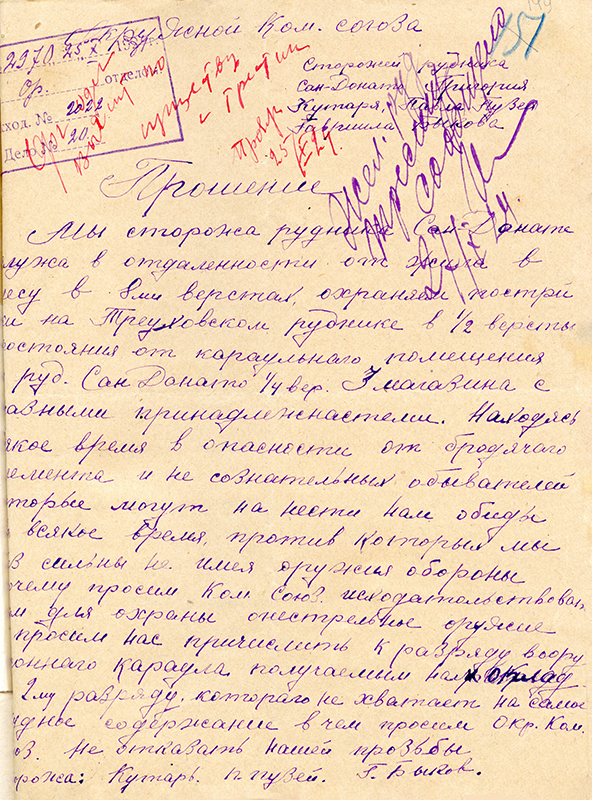 Окружной Ком. союза
2970. 25 X 1924
отдел
Вход. № 2022
Дело № 20
Сторожей рудника
Сан-Донато Григория
Кутаря, Павла Пузей
Гавриила Быкова
157
Прошение
Мы сторожа рудника Сан-Донате
служа в отдаленности от жила в
лесу в 8ми верстах, охраняем построй
ки на Треуховском руднике в 1/2 версты
ростояния от караульнаго помещения
руд. Сан Донато 1/4 вер. 3 магазина с
разными принадлежнастеми. Находясь
всякое время в опасности от бродячаго
элемента и не сознательных обывателей
которые могут на нести нам обиды
всякое время, против которых мы
сильны не имея оружия обороны
почему просим Ком. Союз. исходательствоват
нам для охраны огнестрельное оружие
просим нас причислить к разряду воору
женнаго караула, получаемим нами оклад
2му разряду, котораго не хватает на самое
содержание в чем просим Окр. Ком.
Союз. Не отказать нашей прозьбы
Сторожа: Кутарь. П. Пузей. Г. Быков.